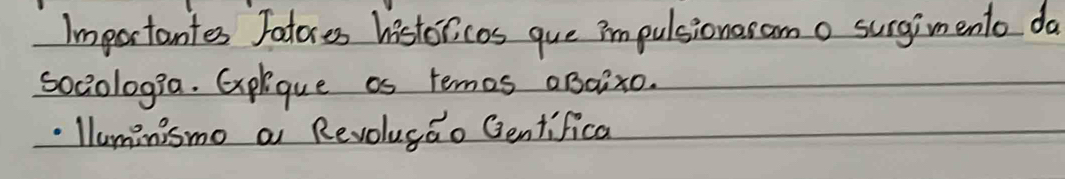 Importantes Fatores históricos que impulsionaram o surgimento da
sociologia. Explique os temas abaixo.
• Iluminismo a Revolução Científica